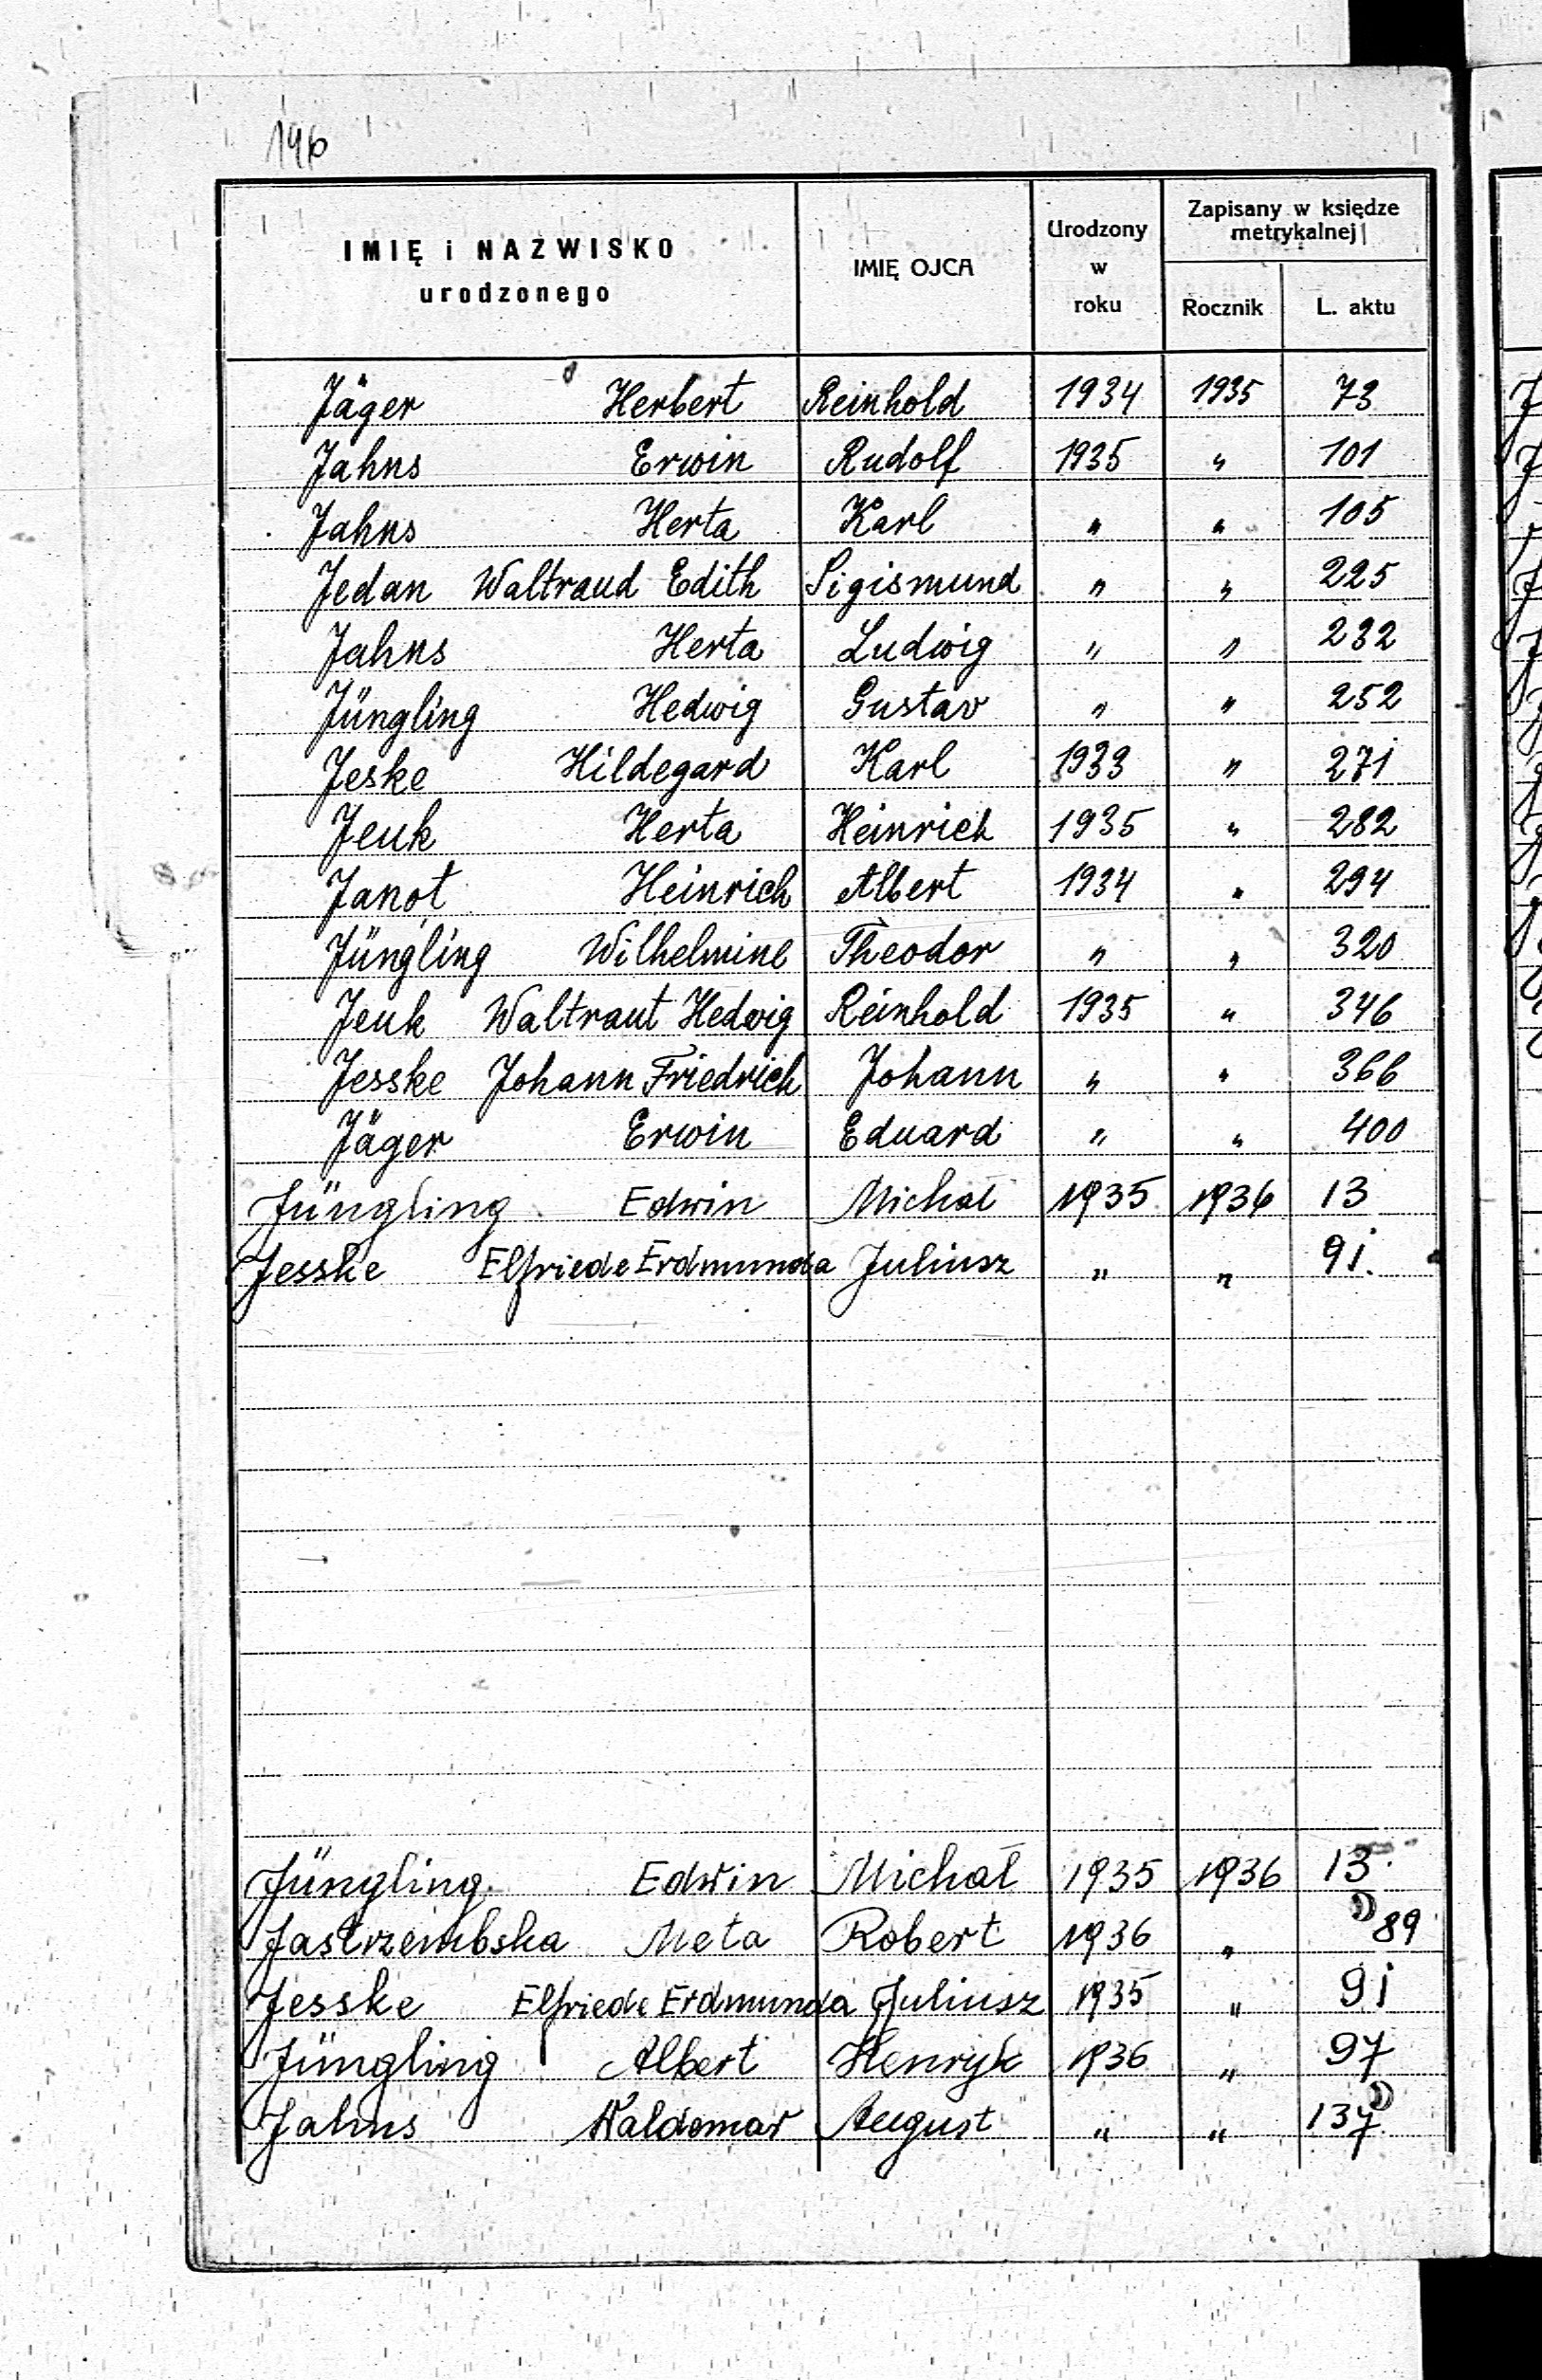 146
IMIĘ i NAZWISKO
urodzonego
IMIĘ OJCA
Urodzony
w
roku
Zapisany w księdze
metrykalnej
Rocznik
L. aktu
Jäger Herbert Reinhold 1934 1935 73
Jahns Erwin Rudolf 1935 " 101
Jahns Herta Karl " " 105
Jedan Waltraud Edith Sigismund " " 225
Jahns Herta Ludwig " " 232
Jüngling Hedwig Gustav " " 252
Jeske Hildegard Karl 1933 " 271
Jeuk Herta Heinrich 1935 " 282
Janot Heinrich Albert 1934 " 294
Jüngling Wilhelmine Theodor " " 320
Jeuk Waltraut Hedwig Reinhold 1935 " 346
Jesske Johann Friedrich Johann " " 366
Jäger Erwin Eduard " " 400
Jüngling Edwin Michał 1935 1936 13
Jesske Elfriede Erdmunda Juliusz " " 91.
Jüngling Edwin Michał 1935 1936 13
Jastrzembska Meta Robert 1936 " 89
Jesske Elfriede Erdmunda Juliusz 1935 " 91
Jüngling Albert Henryk 1936 " 97
Jahns Waldemar August " " 137